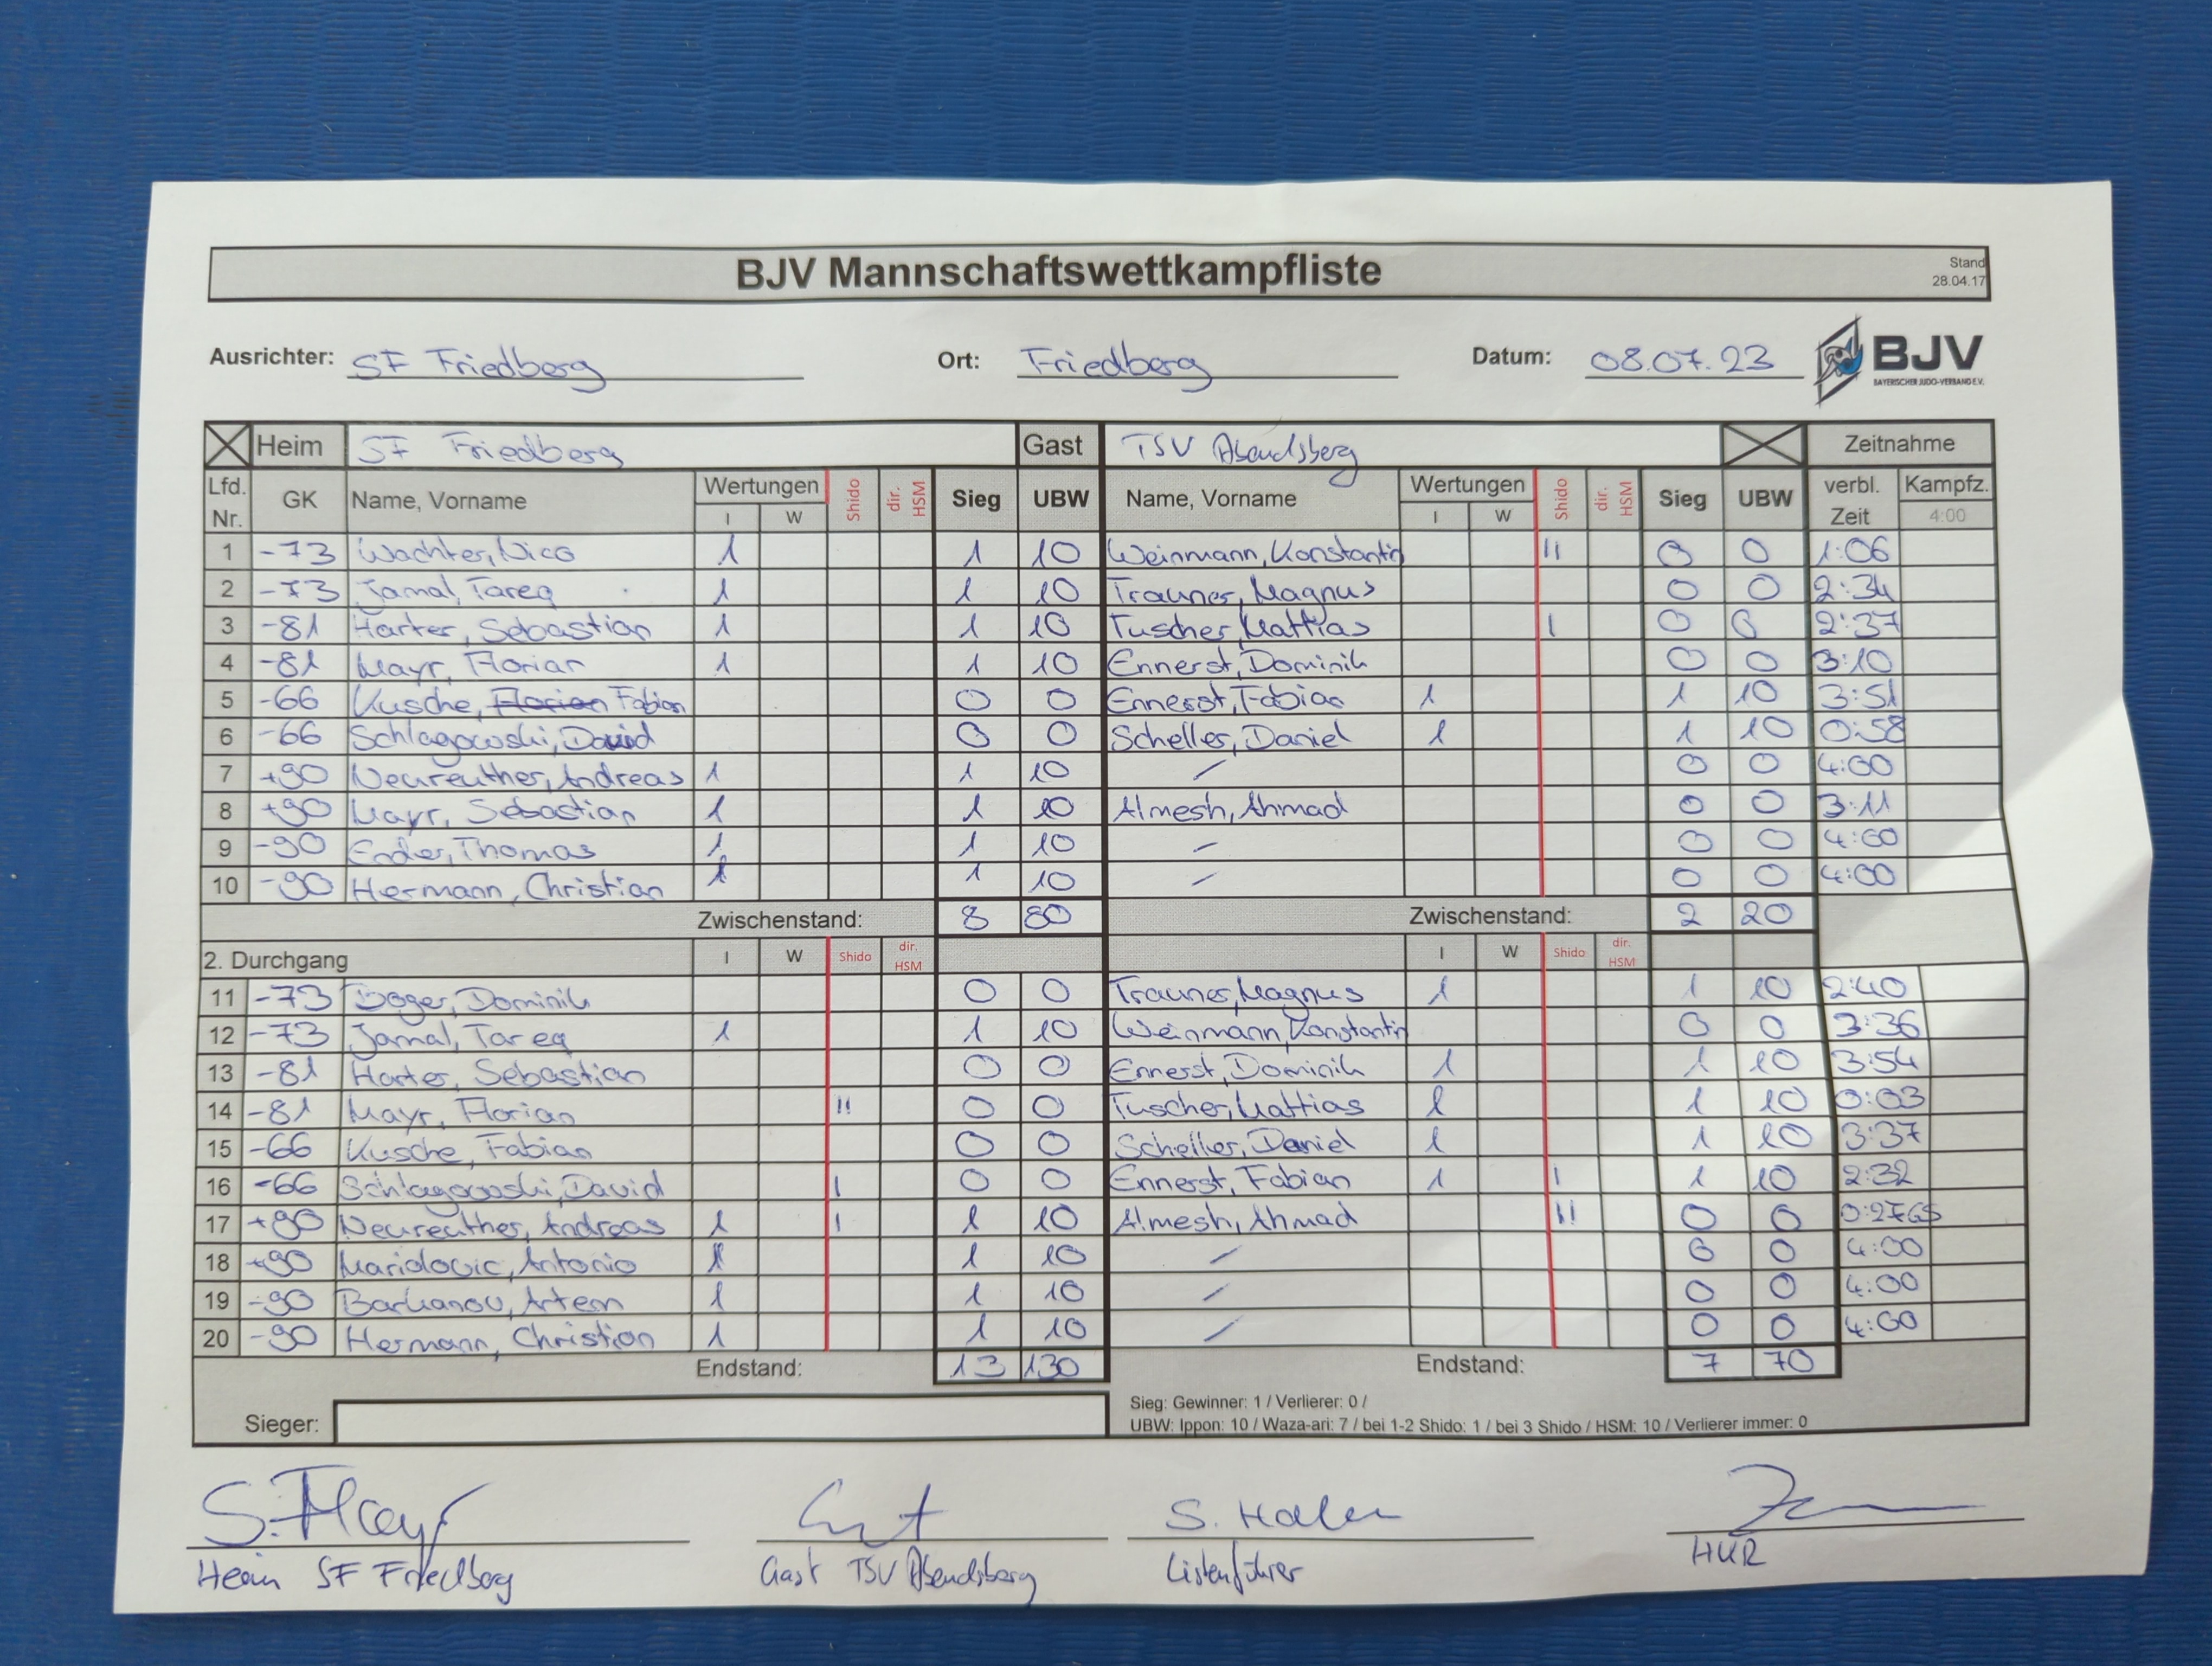 BJV Mannschaftswettkampfliste
Stand
28.04.17
Ausrichter: SF Friedberg Ort: Friedberg Datum: 08.07.23
BJV
BAYERISCHER JUDO-VERBAND E.V.
Heim SF Friedberg Gast TSV Abendsberg Zeitnahme
Lfd. Nr. GK Name, Vorname Wertungen I W Shido dir. HSM Sieg UBW Name, Vorname Wertungen I W Shido dir. HSM Sieg UBW verbl. Zeit Kampfz. 4:00
1 -73 Wachter, Nico 1 1 10 Weinmann, Konstantin II 0 0 1:06
2 -73 Jamal, Tareq 1 1 10 Trauner, Magnus 0 0 2:34
3 -81 Harter, Sebastian 1 1 10 Tuscher, Mattias I 0 0 2:37
4 -81 Mayr, Florian 1 1 10 Ennerst, Dominik 0 0 3:10
5 -66 Kusche, Florian Fabian 0 0 Ennerst, Fabian 1 1 10 3:51
6 -66 Schlagowski, David 0 0 Scheller, Daniel 1 1 10 0:58
7 +90 Neureuther, Andreas 1 1 10 / 0 0 4:00
8 +90 Mayr, Sebastian 1 1 10 Almesh, Ahmad 0 0 3:11
9 -90 Ender, Thomas 1 1 10 / 0 0 4:00
10 -90 Hermann, Christian 1 1 10 / 0 0 4:00
Zwischenstand: 8 80 Zwischenstand: 2 20
2. Durchgang I W Shido dir. HSM I W Shido dir. HSM
11 -73 Boger, Dominik 0 0 Trauner, Magnus 1 1 10 2:40
12 -73 Jamal, Tareq 1 1 10 Weinmann, Konstantin 0 0 3:36
13 -81 Harter, Sebastian 0 0 Ennerst, Dominik 1 1 10 3:54
14 -81 Mayr, Florian II 0 0 Tuscher, Mattias 1 1 10 0:03
15 -66 Kusche, Fabian 0 0 Scheller, Daniel 1 1 10 3:37
16 -66 Schlagowski, David I 0 0 Ennerst, Fabian 1 I 1 10 2:32
17 +90 Neureuther, Andreas 1 I 1 10 Almesh, Ahmad II 0 0 0:27GS
18 +90 Maridovic, Antonio 1 1 10 / 0 0 4:00
19 -90 Barkanov, Artem 1 1 10 / 0 0 4:00
20 -90 Hermann, Christian 1 1 10 / 0 0 4:00
Endstand: 13 130 Endstand: 7 70
Sieger:
Sieg: Gewinner: 1 / Verlierer: 0 /
UBW: Ippon: 10 / Waza-ari: 7 / bei 1-2 Shido: 1 / bei 3 Shido / HSM: 10 / Verlierer immer: 0
S. Mayr S. Haller
Heim SF Friedberg Gast TSV Abendsberg Listenführer HKR